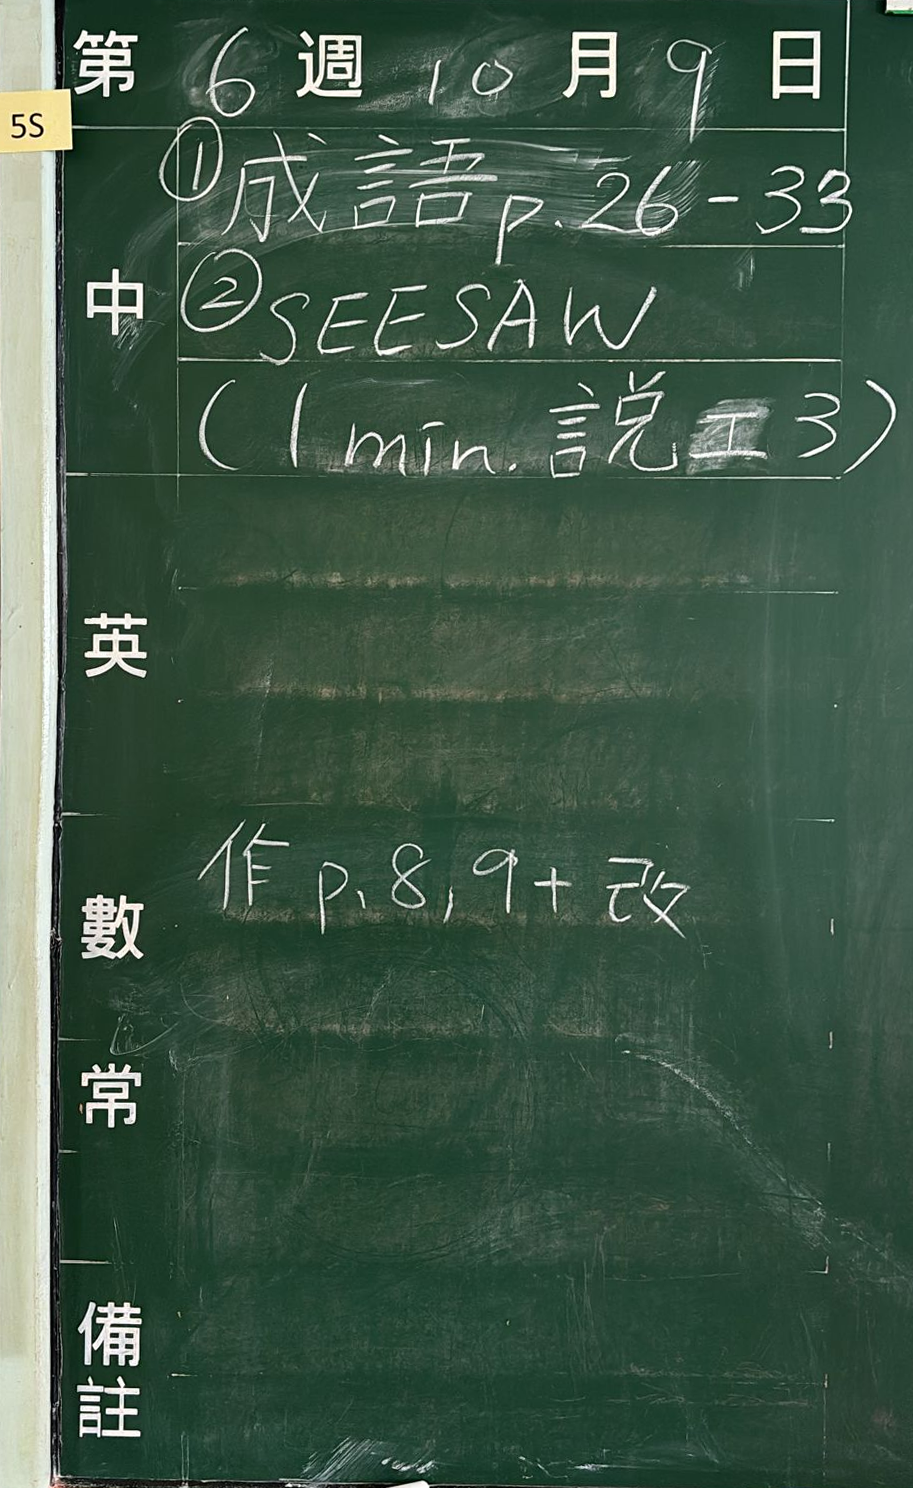 第 6 週 10 月 9 日
5S
① 成語 p.26-33
中 ② SEESAW
(1 min. 說工 3)
英
數 作 p.8,9+ 改
常
備註